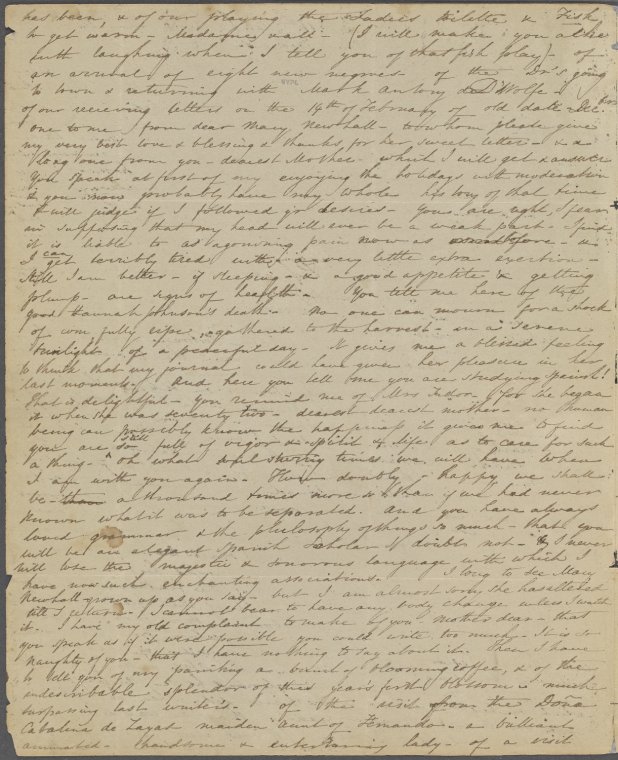 has been, & of our playing the Ladies toilette & Fish,
to get warm - Madame's wall - (I will make you ache
with laughing when I tell you of that fish play) - of
an arrival of eight new negroes - of the Dr's going
to town & returning with Mark Antony D'Wolfe -
of our receiving letters on the 14th of February of old date - Dec.
one to me from dear Mary Newhall - to whom please give
my very best love & blessing & thanks for her sweet letter - & a
long one from you - dearest Mother - which I will get & answer
You speak at first of my enjoying the holidays with moderation
& you probably have my whole history of that time
& will judge if I followed yr desires - You are right, I fear
in supposing that my head will ever be a weak part - I find
it is liable to as agonising pain now as before - &
I can get terribly tired with a very little extra exertion -
Still I am better - if sleeping - & a good appetite & getting
plump - are signs of health - You tell me here of the
good Hannah Johnson's death - No one can mourn for a shock
of corn fully ripe, gathered to the harvest - in a serene
twilight of a peaceful day - It gives me a blessed feeling
to think that my journal could have given her pleasure in her
last moments. And here you tell me you are studying Spanish!
That is delightful - you remind me of Mrs - for she began
it when she was seventy two - dearest dearest mother - no human
being can possibly know the happiness it gives me to find
you are still so full of vigor & spirit & life as to care for such
a thing - oh what times we will have when
I am with you again - How doubly happy we shall
be - a thousand times more so than if we had never
known what it was to be separated. And you have always
loved grammar & the philosophy of things so much - that you
will be an elegant Spanish scholar I doubt not - & I never
will lose the majestic & sonorous language with which I
have now such enchanting associations. I long to see Mary
Newhall grown up as you say - but I am almost sorry she has altered
till I return - I cannot bear to have any body change unless I watch
it. I have my old complaint to make of you mother dear - that
you speak as if it were possible you could write too much - It is so
naughty of you - that I have nothing to say about it. Then I have
to tell you of my painting a bunch of blooming coffee, & of the
indescribable splendor of this year's first blossom - much
surpassing last winter's - of the visit from the Dona
Catalina de Zayas maiden aunt of Fernando - a brilliant
animated - handsome & entertaining lady - of a visit